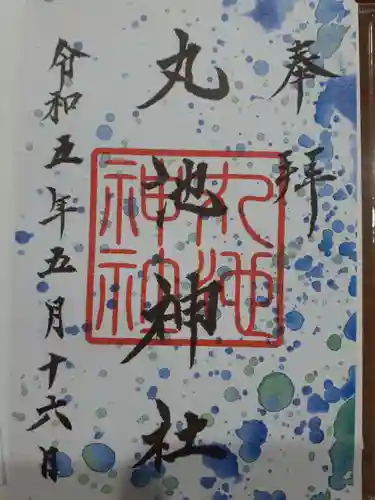 奉拝
丸池神社
丸池神社
令和五年五月十六日